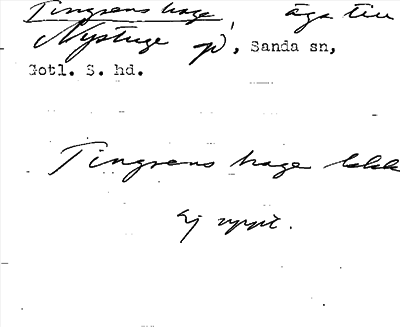 Tingsens hage, äga till
Nystuge p, Sanda sn,
Gotl. S. hd.
Tingsens hage
Ej uppt.